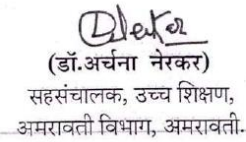 (डॉ.अर्चना नेरकर)
सहसंचालक, उच्च शिक्षण,
अमरावती विभाग, अमरावती.